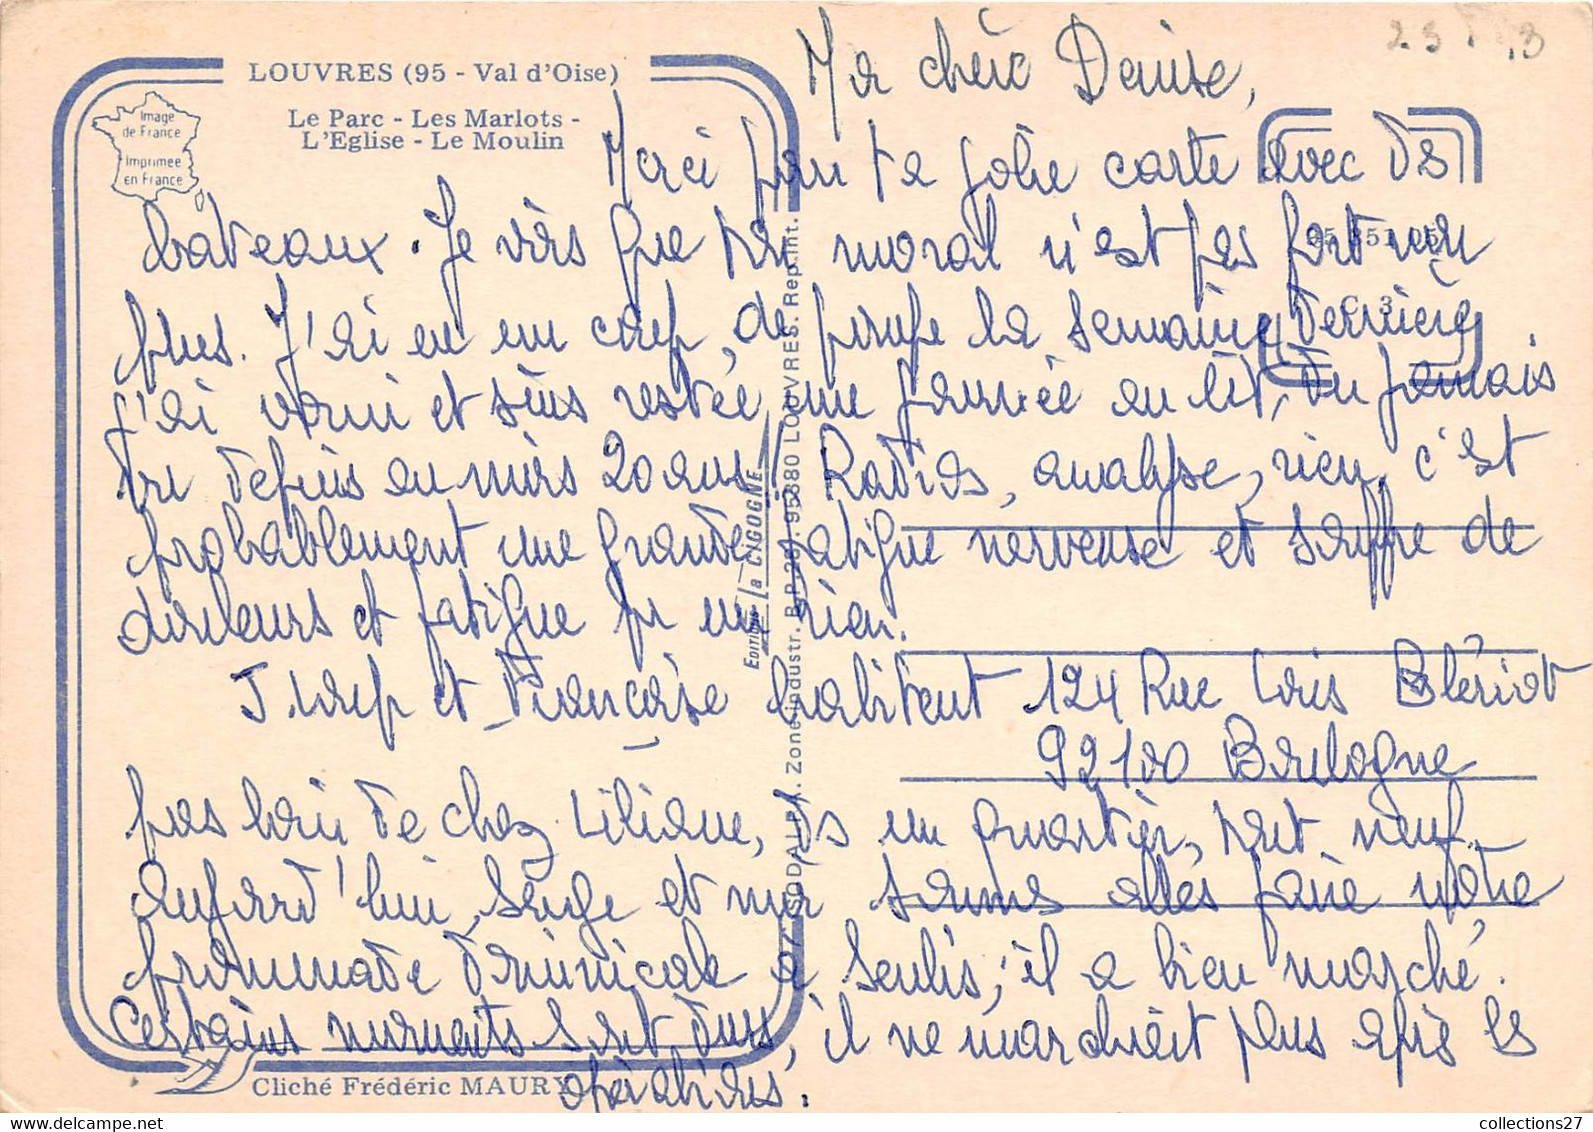 LOUVRES (95 - Val d'Oise)
Le Parc - Les Marlots -
L'Eglise - Le Moulin
Image
de France
Imprimée
en France
Ma chère Denise,
Merci pour ta jolie carte avec ds
bateaux. Je vois que ton moral n'est pas fort non
plus. J'ai eu un coup de pompe la semaine dernière
j'ai vomi et suis restée une journée au lit, du jamais
vu depuis au moins 20 ans. Radios, analyse, rien, c'est
probablement une grande fatigue nerveuse et souffre de
douleurs et fatigue pr un rien.
J. Loup et Françoise habitent 124 Rue Louis Blériot
92100 Boulogne
pas loin de chez Liliane, ds un quartier tout neuf.
aujourd'hui, Serge et moi sommes allés faire notre
promenade dominicale à Senlis, il a bien marché.
Certains moments sont durs, il ne marchait plus après les
opérations.
Editions la CIGOGNE
SODALFA. Zone industr. B.P. 28, 95380 LOUVRES. Rep. Int.
C 3
Cliché Frédéric MAURY
collections27